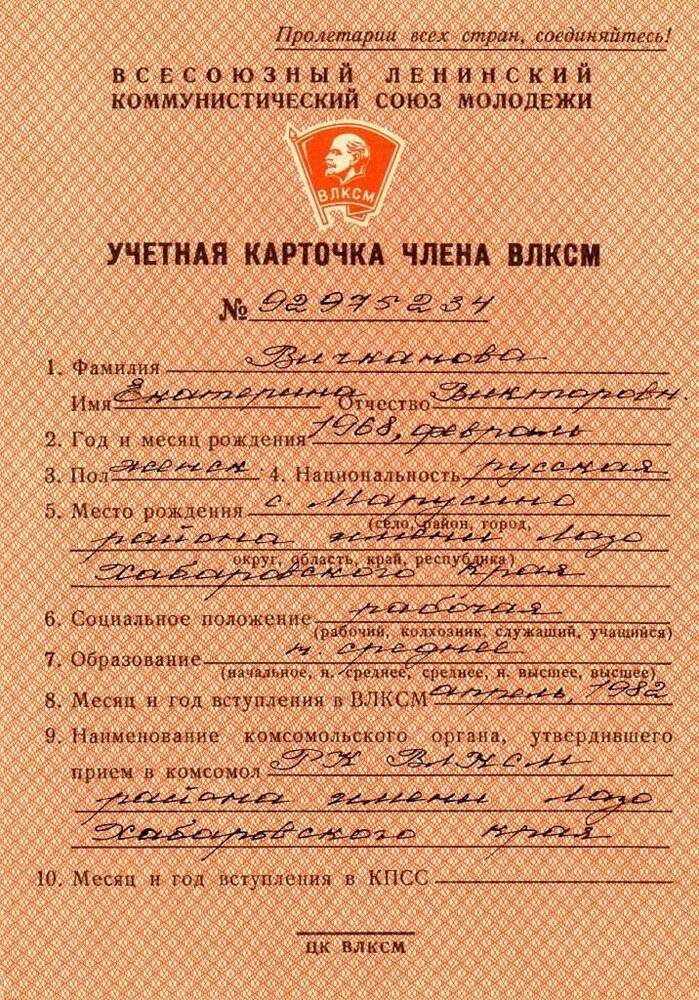 Пролетарии всех стран, соединяйтесь!
ВСЕСОЮЗНЫЙ ЛЕНИНСКИЙ
КОММУНИСТИЧЕСКИЙ СОЮЗ МОЛОДЕЖИ
ВЛКСМ
УЧЕТНАЯ КАРТОЧКА ЧЛЕНА ВЛКСМ
№ 92975234
1. Фамилия Вичканова
Имя Екатерина Отчество Викторовн.
2. Год и месяц рождения 1968, февраль
3. Пол женск 4. Национальность русская
5. Место рождения с. Марусино
(село, район, город,
района имени Лазо
округ, область, край, республика)
Хабаровского края
6. Социальное положение рабочая
(рабочий, колхозник, служащий, учащийся)
7. Образование н. среднее
(начальное, н. среднее, среднее, н. высшее, высшее)
8. Месяц и год вступления в ВЛКСМ апрель, 1982
9. Наименование комсомольского органа, утвердившего
прием в комсомол РК ВЛКСМ
района имени Лазо
Хабаровского края
10. Месяц и год вступления в КПСС
ЦК ВЛКСМ